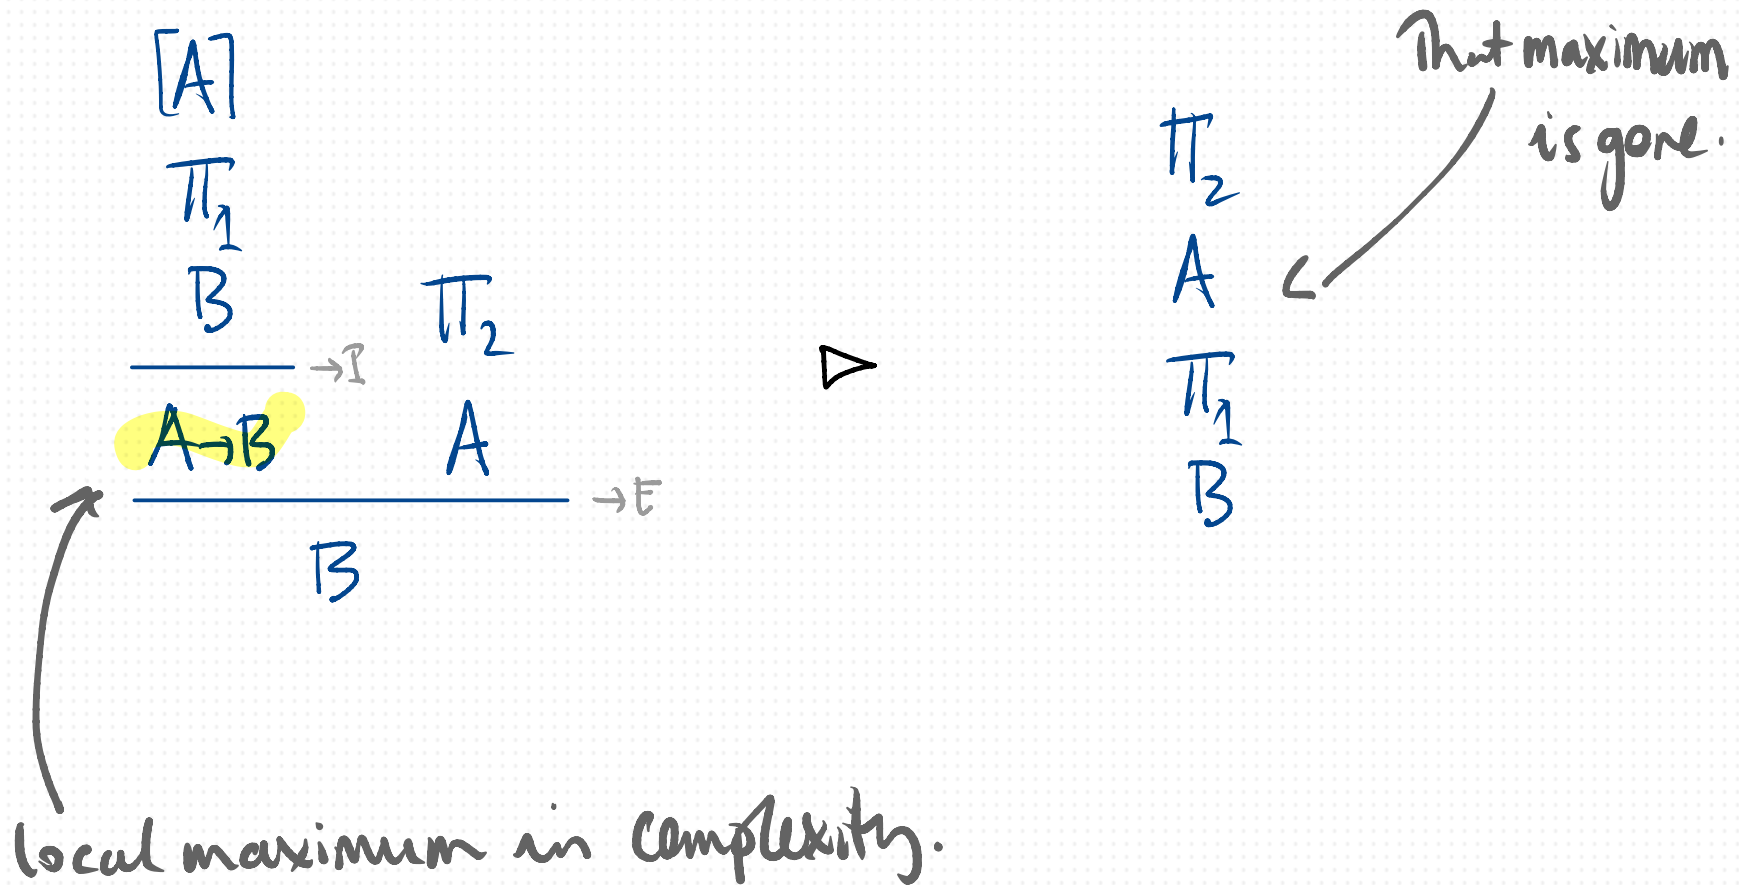 [A]
Π₁
B
→I
Π₂
A→B
A
→E
B
▷
Π₂
A
Π₁
B
That maximum
is gone.
local maximum in complexity.